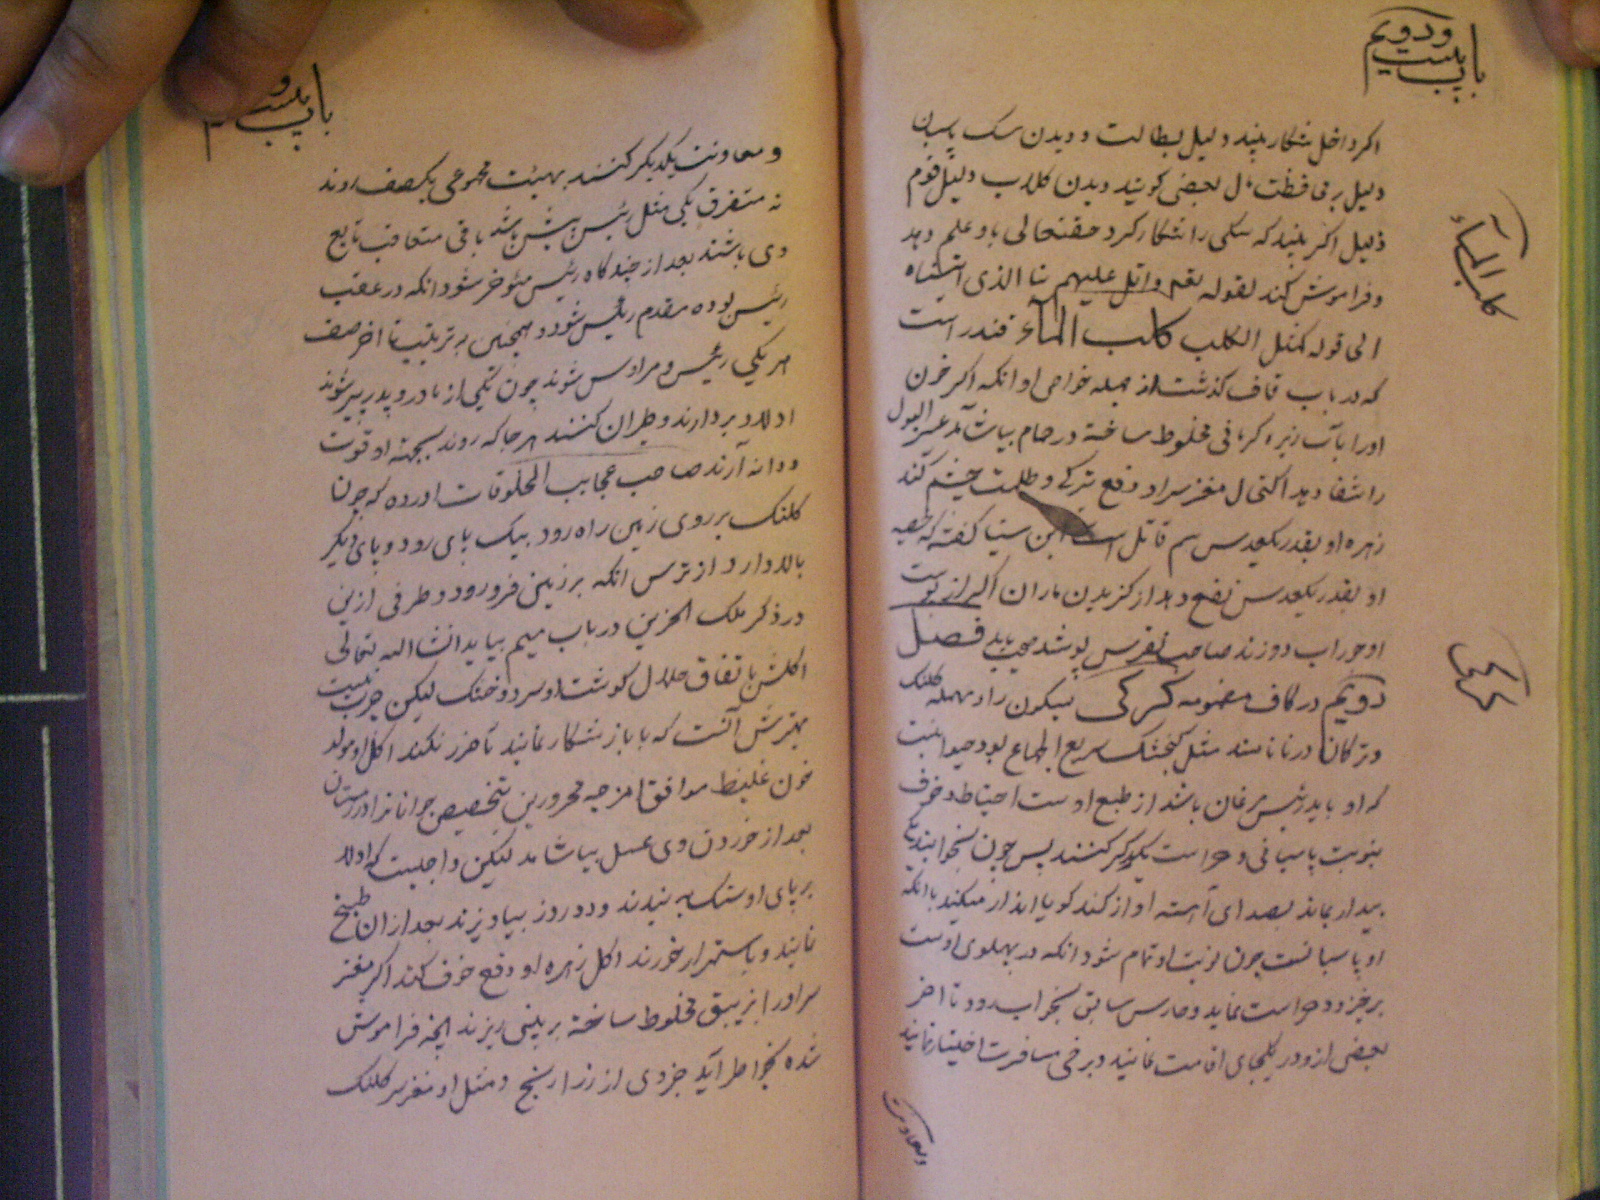 باب بیست ودویم
اکر داخل شکار بیند دلیل بطالت و دیدن سک پاسبان
دلیل بر محافظت مال بعضی کویند دیدن کلاب دلیل قوم
ذلیل اکر بیند که سکی را شکار کرد حقتعالی باو علم دهد
وفراموش کند لقوله تعم واتل علیهم نبا الذی اتیناه
الی قوله کمثل الکلب کلب المآء قندر است
کلب المآء
که در باب قاف کذشت از جمله خواص او انکه اکر خون
اورا بآب زیره کرمانی مخلوط ساخته در حمام بیاشامد عسر البول
را شفا دهد اکتحال مغز سر او دفع تیرکی و ظلمت چشم کند
زهره او بقدر یکعدس سم قاتل است ابن سینا کفته که خصیه
او بقدر یکعدس نفع دهد از کزیدن ماران اکر از پوست
او جوراب دوزند صاحب نقرس پوشد صحت یابد فصل
دویم در کاف مضمومه کرکی بسکون راء مهمله کلنک
کرکی
وترکان درنا نامند مثل کنجشک سریع الجماع بود حیوانیست
که او باید رئیس مرغان باشد از طبع اوست احتیاط و خوف
بنوبت پاسبانی و حراست یکدیکر کنند پس چون بخوابند یکی
بیدار بماند بصدای آهسته اواز کند کویا انذار میکند بانکه
او پاسبانست چون نوبت او تمام شود انکه در پهلوی اوست
برخیزد و حراست نماید و حارس سابق بخواب رود تا اخر
بعضی از و در یکجای اقامت نمایند و برخی مسافرت اختیار نمایند
ومعاونت
باب بیست و
و معاونت یکدیکر کنند بهیئت مجموعی یکصف روند
نه متفرق یکی مثل رئیس پیش باشد باقی متعاقب تابع
وی باشند بعد از چند کاه رئیس مؤخر شود انکه در عقب
رئیس بوده مقدم رئیس شود و همچنین بترتیب تا اخر صف
هر یکی رئیس و مراوس شوند چون یکی از مادر و پدر پیر شوند
اولاد بردارند و طیران کنند هرجا که روند بجهته او قوت
و دانه آرند صاحب عجایب المخلوقات اورده که چون
کلنک بر روی زمین راه رود بیک پای رود و پای دیکر
بالا دارد از ترس انکه بر زمینی فرو رود و طرفی ازین
در ذکر ملک الحزین در باب میم بیاید انشا الله تعالی
اکلش باتفاق حلال کوشت او سرد و خشک لیکن چرب نیست
بهترش آنست که با باز شکار نمایند تا ضرر نکند اکل او مولد
خون غلیظ موافق امزجه محرورین بتخصیص جوانان در زمستان
بعد از خوردن وی عسل بیاشامد لیکن واجبست که اولا
بر پای او سنک به بندند و دو روز بیاویزند بعد ازان طبخ
نمایند و باستمرار خورند اکل زهره او دفع خوف کند اکر مغز
سر اورا بزیبق مخلوط ساخته بر بینی ریزند انچه فراموش
شده بخواطر آید جزوی از زرنیخ و مثل او مغز سر کلنک